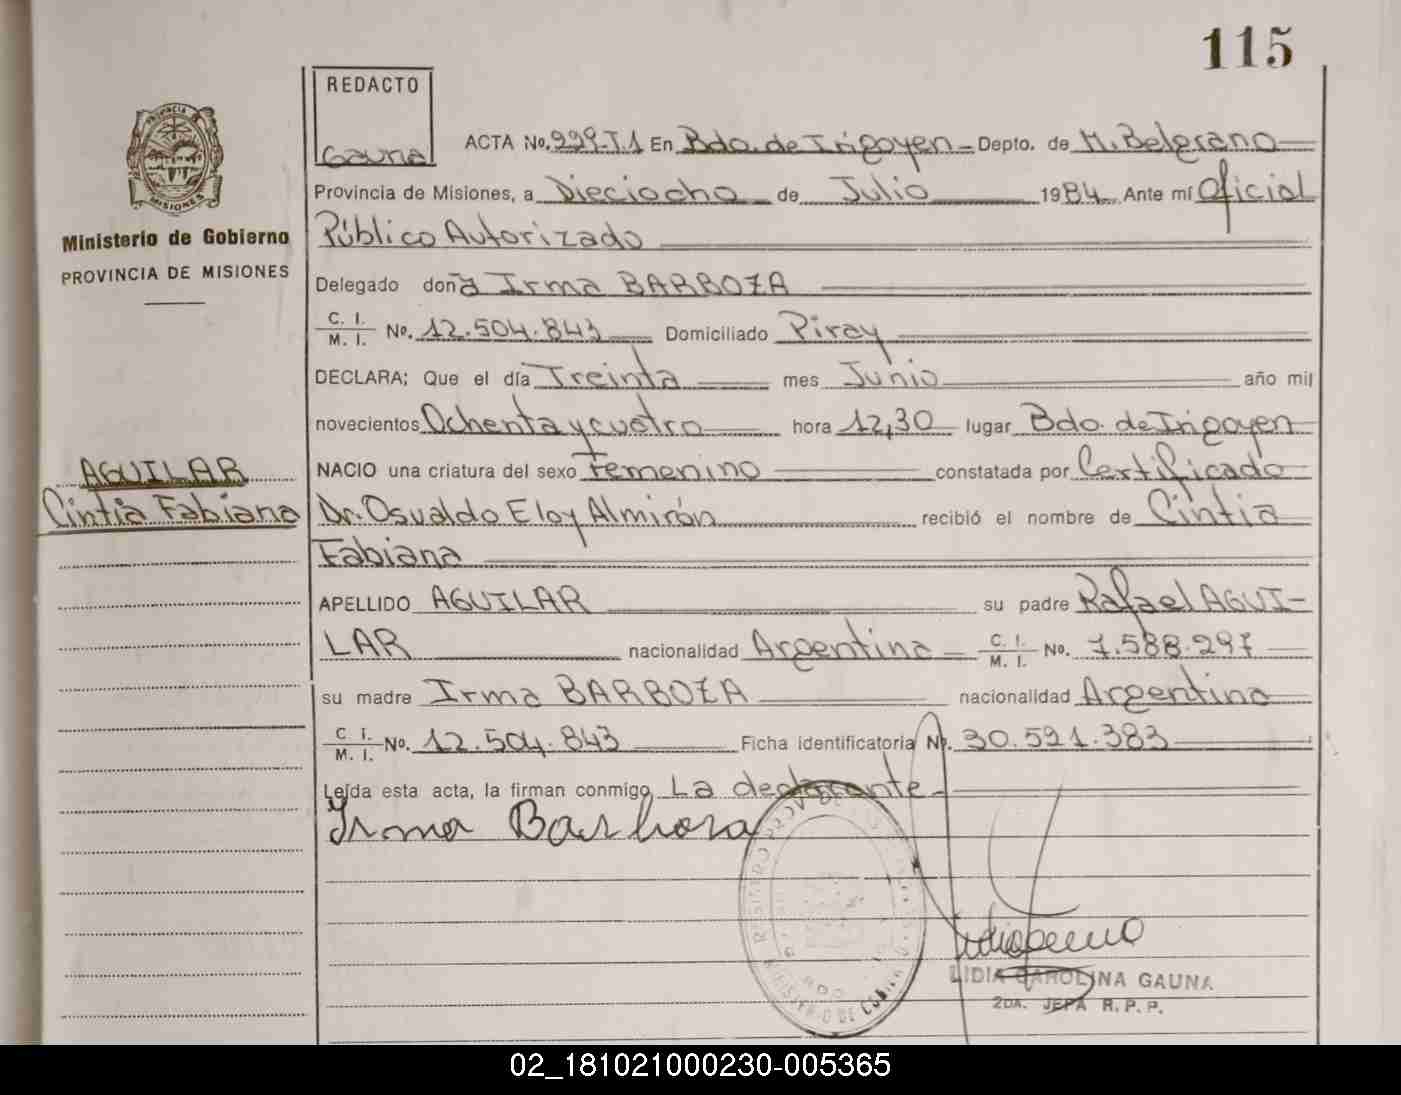 115
REDACTO
Gauna
ACTA No. 229-T1 En Bdo. de Irigoyen - Depto. de M. Belgrano
Provincia de Misiones, a Dieciocho de Julio 1984 Ante mí Oficial
Público Autorizado
Ministerio de Gobierno
PROVINCIA DE MISIONES
Delegado doña Irma BARBOZA
C. I.
M. I. No. 12.504.843 Domiciliado Piray
DECLARA; Que el día Treinta mes Junio año mil
novecientos Ochenta y cuatro hora 12,30 lugar Bdo. de Irigoyen
AGUILAR
NACIO una criatura del sexo Femenino constatada por Certificado
Cintia Fabiana
Dr. Osvaldo Eloy Almirón recibió el nombre de Cintia
Fabiana
APELLIDO AGUILAR su padre Rafael AGUI-
LAR nacionalidad Argentina - C. I. M. I. No. 7.588.297
su madre Irma BARBOZA nacionalidad Argentina
C I.
M. I. No. 12.504.843 Ficha identificatoria No. 30.591.383
Leída esta acta, la firman conmigo La declarante-
Irma Barboza
LIDIA CAROLINA GAUNA
2DA. JEFA R.P.P.
02_181021000230-005365